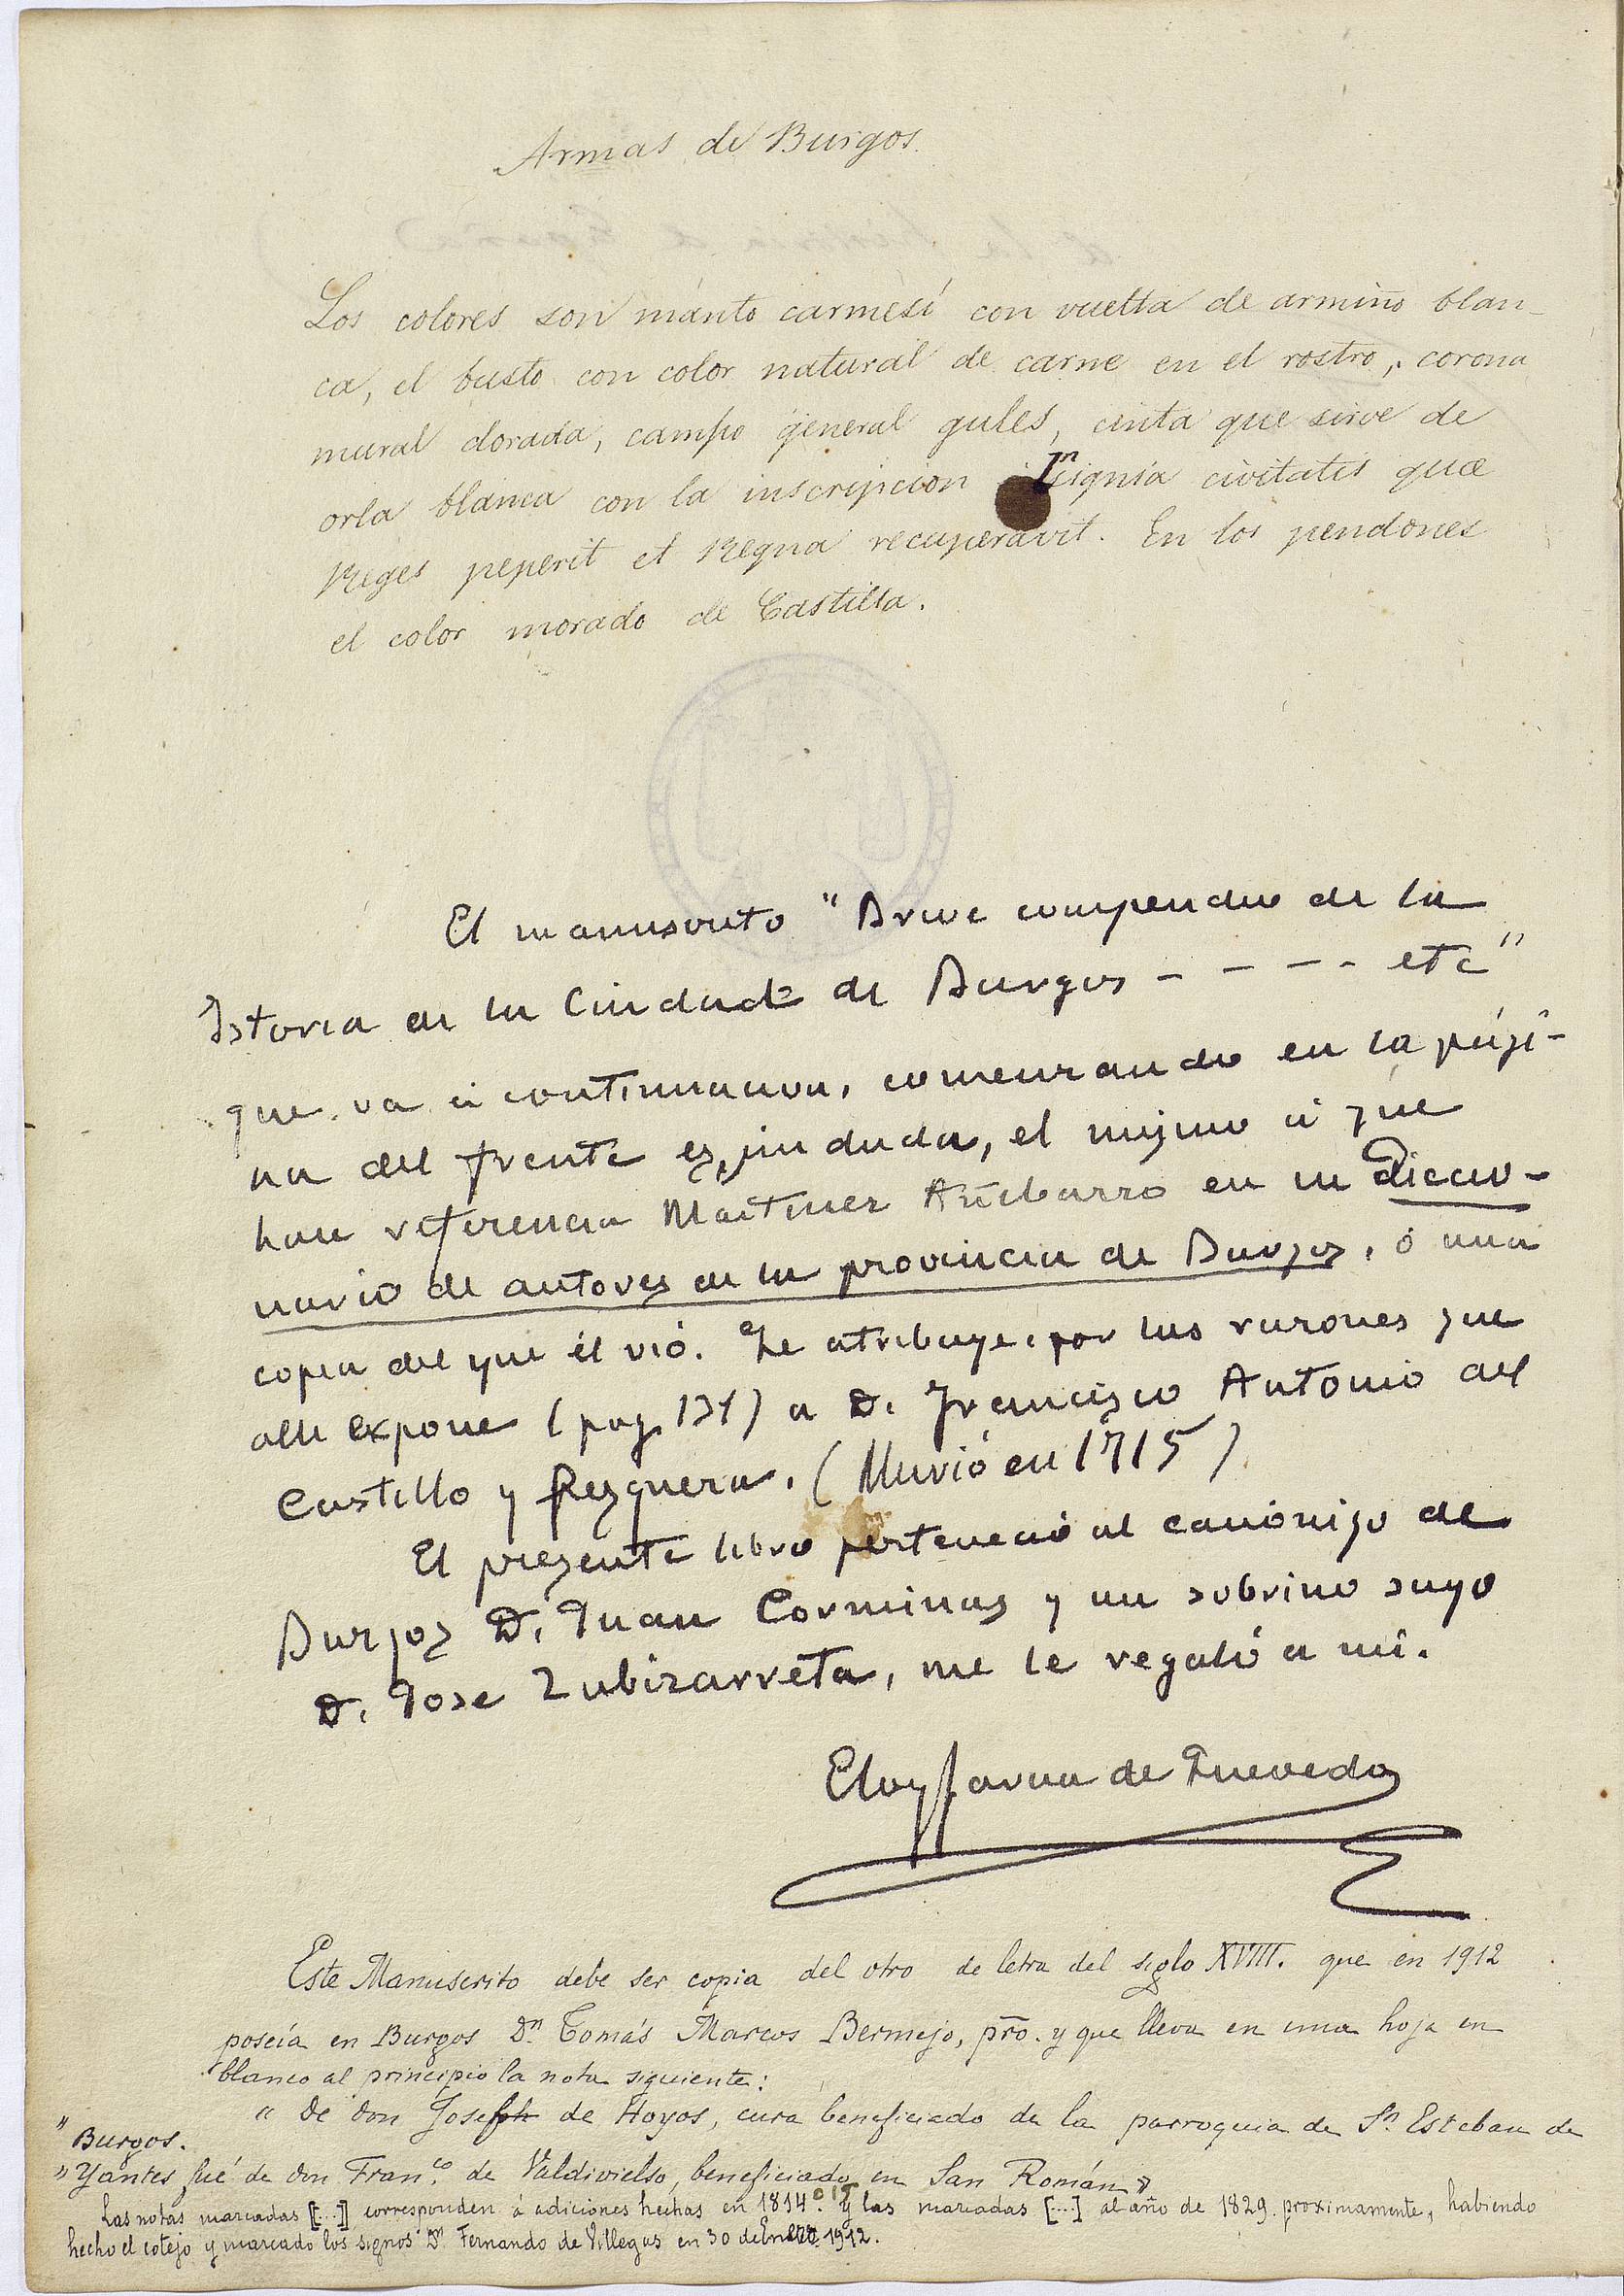 Armas de Burgos.
Los colores son manto carmesí con vuelta de armiño blan-
ca, el busto con color natural de carne en el rostro, corona
mural dorada, campo general gules, cinta que sirve de
orla blanca con la inscripcion Insignia civitatis quæ
Reges peperit et Regna recuperavit. En los pendones
el color morado de Castilla.
El manuscrito "Breve compendio de la
Istoria de la Ciudad de Burgos - - - - etc"
que va á continuacion, comenzando en la pági-
na del frente es, sin duda, el mismo á que
hace referencia Martinez Añibarro en su Diccio-
nario de autores de la provincia de Burgos, ó una
copia del que él vió. Le atribuye, por las razones que
alli expone (pag 131) a D. Francisco Antonio del
Castillo y Pesquera. (Murió en 1715)
El presente libro perteneció al canónigo de
Burgos D. Juan Corminas y un sobrino suyo
D. Jose Zubizarreta, me le regaló a mi.
Eloy García de Quevedo
Este Manuscrito debe ser copia del otro de letra del siglo XVIII. que en 1912
poseía en Burgos Dn. Tomás Marcos Bermejo, pro. y que lleva en una hoja en
blanco al principio la nota siguiente:
" De don Joseph de Hoyos, cura beneficiado de la parroquia de Sn. Esteban de
" Burgos.
" Y antes fué de don Franco. de Valdivielso, beneficiado en San Román"
Las notas marcadas [...] corresponden á adiciones hechas en 1814 y las marcadas [...] al año de 1829 proximamente, habiendo
hecho el cotejo y marcado los signos Dn. Fernando de Villegas en 30 de Enero 1912.